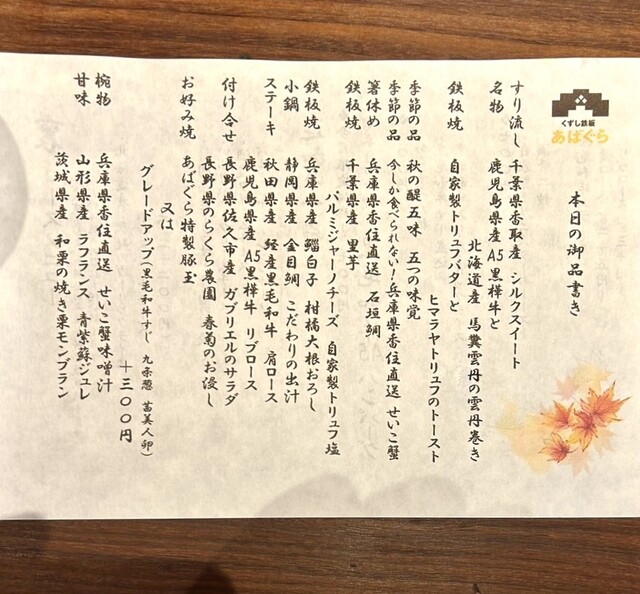 くずし鉄板
あばぐら
本日の御品書き
すり流し 千葉県香取産 シルクスイート
名物 鹿児島県産A5黒樺牛と
北海道産 馬糞雲丹の雲丹巻き
鉄板焼 自家製トリュフバターと
ヒマラヤトリュフのトースト
季節の品 秋の醍五味 五つの味覚
季節の品 今しか食べられない!兵庫県香住直送 せいこ蟹
箸休め 兵庫県香住直送 石垣鯛
鉄板焼 千葉県産 里芋
パルミジャーノチーズ 自家製トリュフ塩
鉄板焼 兵庫県産 鱈白子 柑橘大根おろし
小鍋 静岡県産 金目鯛 こだわりの出汁
ステーキ 秋田県産 経産黒毛和牛 肩ロース
鹿児島県産 A5黒樺牛 リブロース
付け合せ 長野県佐久市産 ガブリエルのサラダ
長野県のらくら農園 春菊のお浸し
お好み焼 あばぐら特製豚玉
又は
グレードアップ(黒毛和牛すじ 九条葱 茜美人卵)
+三〇〇円
椀物 兵庫県香住直送 せいこ蟹味噌汁
甘味 山形県産 ラフランス 青紫蘇ジュレ
茨城県産 和栗の焼き栗モンブラン